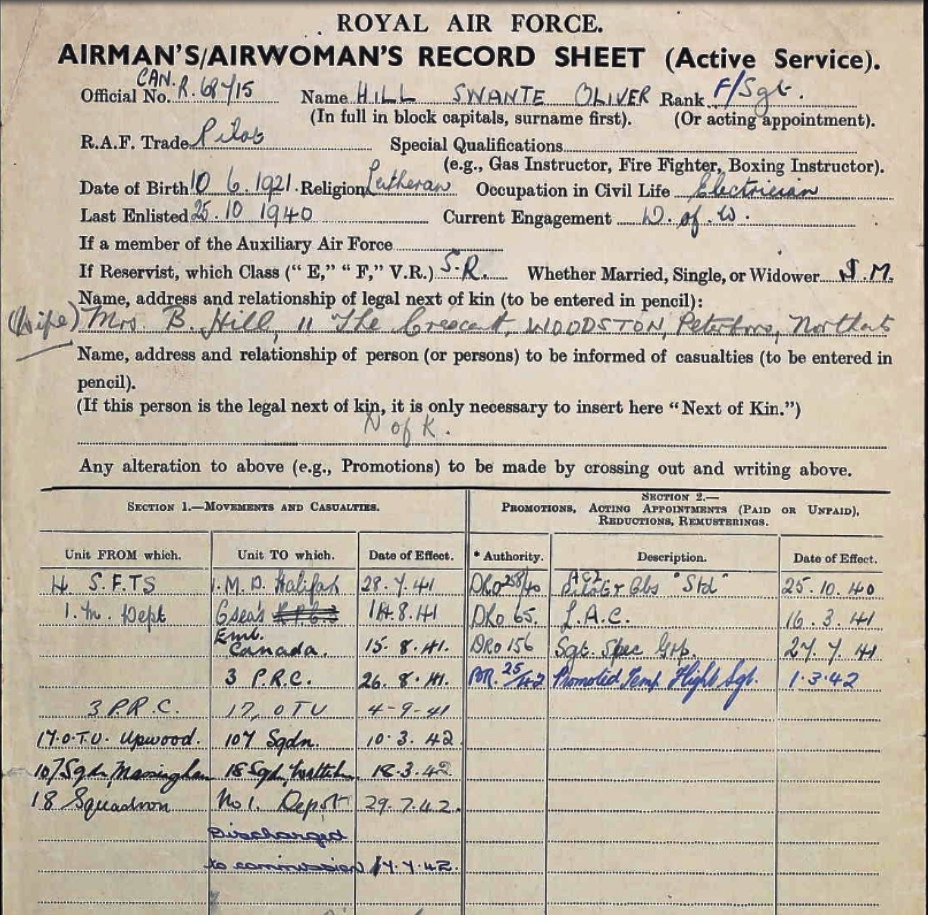 ROYAL AIR FORCE.
AIRMAN'S/AIRWOMAN'S RECORD SHEET (Active Service).
Official No. CAN. R. 68715 Name HILL SWANTE OLIVER Rank F/Sgt.
(In full in block capitals, surname first). (Or acting appointment).
R.A.F. Trade Pilot Special Qualifications
(e.g., Gas Instructor, Fire Fighter, Boxing Instructor).
Date of Birth 10 6. 1921. Religion Lutheran Occupation in Civil Life Electrician
Last Enlisted 25. 10 1940 Current Engagement D. of W.
If a member of the Auxiliary Air Force
If Reservist, which Class (" E," " F," V.R.) S.R. Whether Married, Single, or Widower M.
Name, address and relationship of legal next of kin (to be entered in pencil):
(Wife) Mrs. B. Hill, 11 The Crescent, WOODSTON, Peterboro, Northants
Name, address and relationship of person (or persons) to be informed of casualties (to be entered in
pencil).
(If this person is the legal next of kin, it is only necessary to insert here "Next of Kin.")
N of K.
Any alteration to above (e.g., Promotions) to be made by crossing out and writing above.
SECTION 1.—MOVEMENTS AND CASUALTIES. SECTION 2.—
PROMOTIONS, ACTING APPOINTMENTS (PAID OR UNPAID),
REDUCTIONS, REMUSTERINGS.
Unit FROM which. Unit TO which. Date of Effect. * Authority. Description. Date of Effect.
4 S.F.T.S 1. M.D. Halifax 28. 7. 41 DRO 258/40 AC2 Pilot or Obs "Std" 25. 10. 40
1. M. Dept 14. 8. 41 DRO 65. L.A.C. 16. 3. 41
Emb. Canada. 15. 8. 41. DRO 156 Sgt. Spec Grp. 27. 7. 41
3 P.R.C. 26. 8. 41. 25/42 Promoted Temp Flight Sgt. 1. 3. 42
3 P.R.C. 17, OTU 4-9-41
17.O.T.U. Upwood. 107 Sqdn. 10. 3. 42
107 Sqdn, Massingham 18 Sqd, Wattisham 18. 3. 42
18 Squadron No 1. Depot 29. 7. 42.
Discharged
to commission 17. 7. 42.